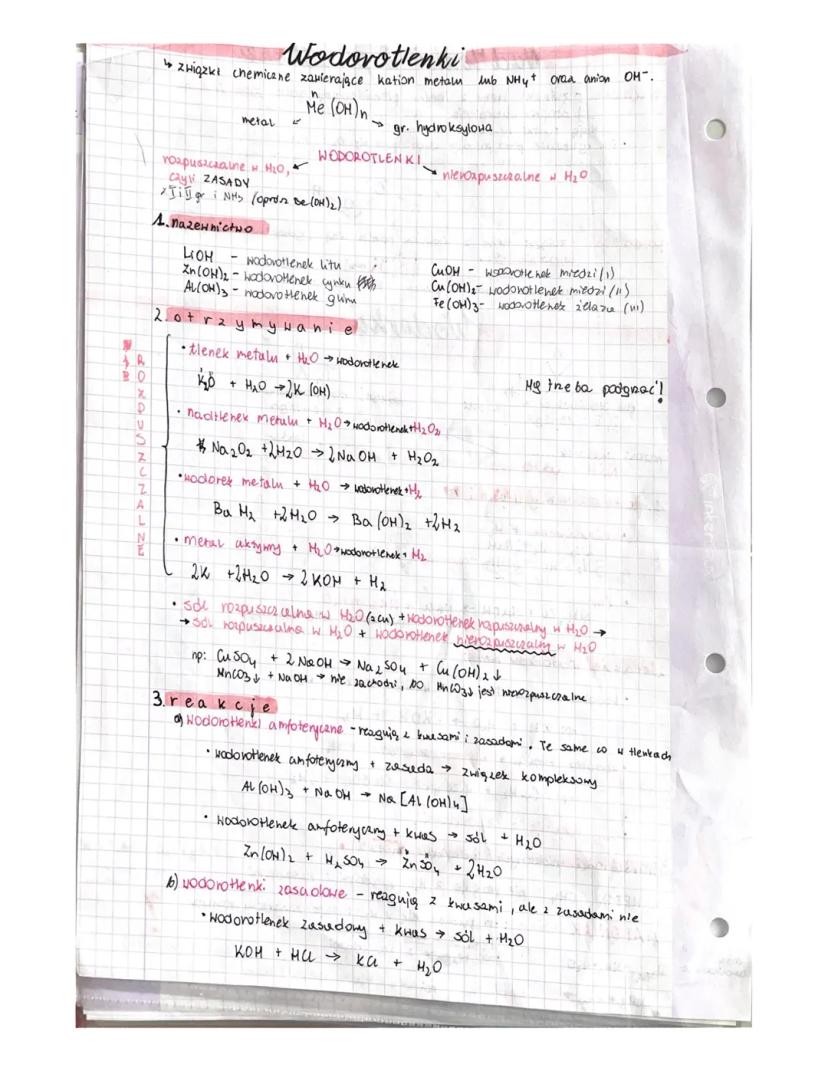 Wodorotlenki
↳ związki chemiczne zawierające kation metalu lub NH₄⁺ oraz anion OH⁻.
n
Me(OH)n
metal ↙ ↘ gr. hydroksylowa
WODOROTLENKI
rozpuszczalne w H₂O,
czyli ZASADY
I i II gr i NH₃ (oprócz Be(OH)₂)
nierozpuszczalne w H₂O
1. nazewnictwo
LiOH - wodorotlenek litu
Zn(OH)₂ - wodorotlenek cynku
Al(OH)₃ - wodorotlenek glinu
CuOH - wodorotlenek miedzi (I)
Cu(OH)₂ - wodorotlenek miedzi (II)
Fe(OH)₃ - wodorotlenek żelaza (III)
2. otrzymywanie
ROZPUSZCZALNE
• tlenek metalu + H₂O → wodorotlenek
K₂O + H₂O → 2K(OH)
Mg trzeba podgrzać!
• nadtlenek metalu + H₂O → wodorotlenek + H₂O₂
Na₂O₂ + 2H₂O → 2NaOH + H₂O₂
• wodorek metalu + H₂O → wodorotlenek + H₂
BaH₂ + 2H₂O → Ba(OH)₂ + 2H₂
• metal aktywny + H₂O → wodorotlenek + H₂
2K + 2H₂O → 2KOH + H₂
• sól rozpuszczalna w H₂O (z Cu) + wodorotlenek rozpuszczalny w H₂O →
→ sól rozpuszczalna w H₂O + wodorotlenek nierozpuszczalny w H₂O
np: CuSO₄ + 2NaOH → Na₂SO₄ + Cu(OH)₂↓
MnCO₃↓ + NaOH → nie zachodzi, bo MnCO₃↓ jest nierozpuszczalne
3. reakcje
a) wodorotlenki amfoteryczne - reagują z kwasami i zasadami. Te same co w tlenkach
• wodorotlenek amfoteryczny + zasada → związek kompleksowy
Al(OH)₃ + NaOH → Na[Al(OH)₄]
• wodorotlenek amfoteryczny + kwas → sól + H₂O
Zn(OH)₂ + H₂SO₄ → ZnSO₄ + 2H₂O
b) wodorotlenki zasadowe - reagują z kwasami, ale z zasadami nie
• wodorotlenek zasadowy + kwas → sól + H₂O
KOH + HCl → KCl + H₂O